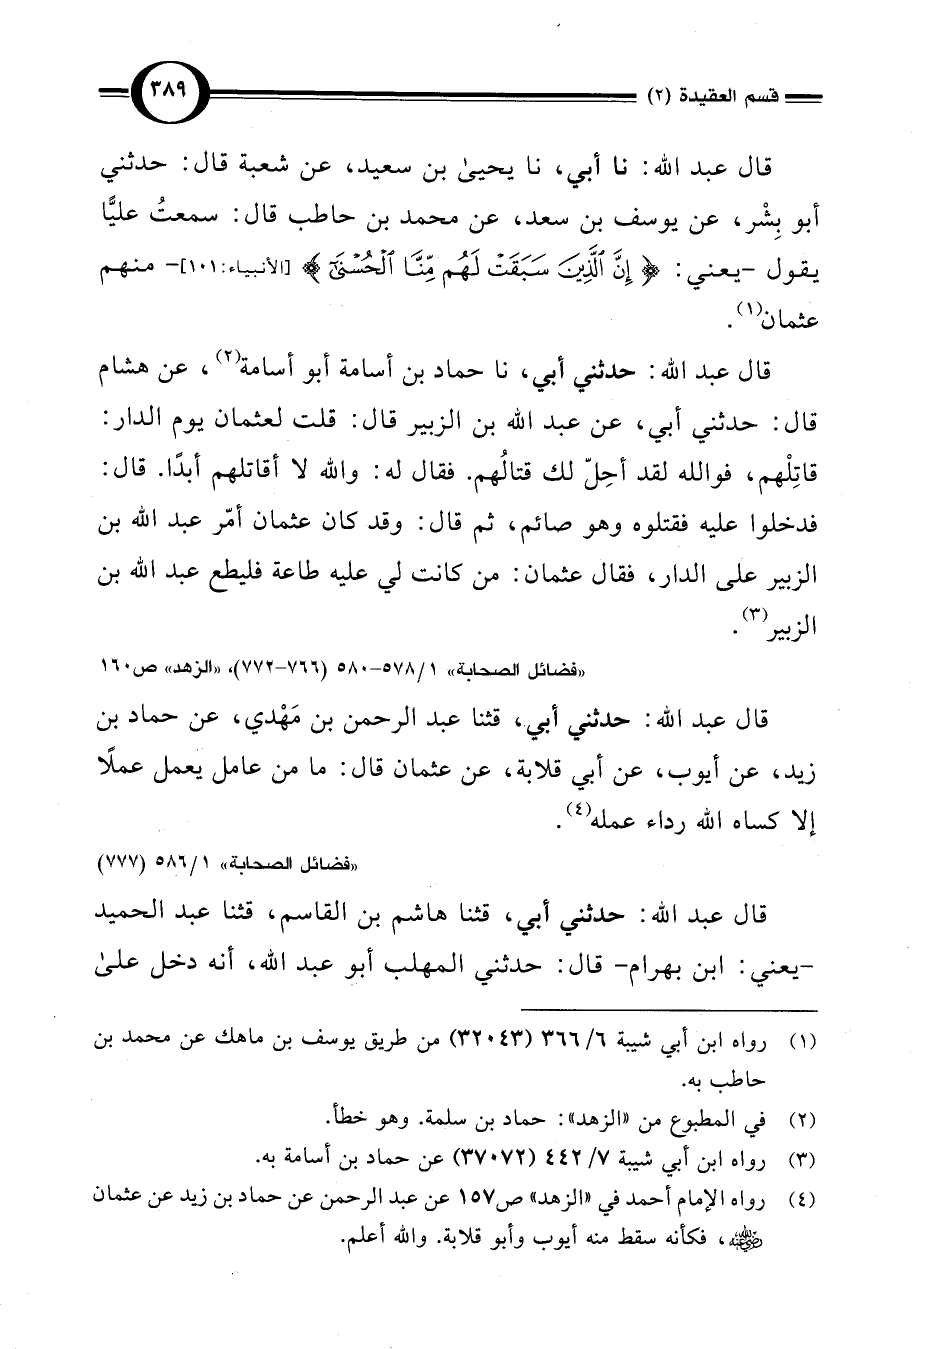 قسم العقيدة (٢)
٣٨٩
قال عبد الله: نا أبي، نا يحيىٰ بن سعيد، عن شعبة قال: حدثني
أبو بِشْر، عن يوسف بن سعد، عن محمد بن حاطب قال: سمعتُ عليًّا
يقول -يعني: ﴿إِنَّ ٱلَّذِينَ سَبَقَتْ لَهُم مِّنَّا ٱلْحُسْنَىٰٓ﴾ [الأنبياء: ١٠١]- منهم
عثمان(١).
قال عبد الله: حدثني أبي، نا حماد بن أسامة أبو أسامة(٢)، عن هشام
قال: حدثني أبي، عن عبد الله بن الزبير قال: قلت لعثمان يوم الدار:
قاتِلْهم، فوالله لقد أحِلّ لك قتالُهم. فقال له: والله لا أقاتلهم أبدًا. قال:
فدخلوا عليه فقتلوه وهو صائم، ثم قال: وقد كان عثمان أمّر عبد الله بن
الزبير على الدار، فقال عثمان: من كانت لي عليه طاعة فليطع عبد الله بن
الزبير(٣).
«فضائل الصحابة» ١/ ٥٧٨-٥٨٠ (٧٦٦-٧٧٢)، «الزهد» ص١٦٠
قال عبد الله: حدثني أبي، قثنا عبد الرحمن بن مَهْدي، عن حماد بن
زيد، عن أيوب، عن أبي قلابة، عن عثمان قال: ما من عامل يعمل عملًا
إلا كساه الله رداء عمله(٤).
«فضائل الصحابة» ١/ ٥٨٦ (٧٧٧)
قال عبد الله: حدثني أبي، قثنا هاشم بن القاسم، قثنا عبد الحميد
-يعني: ابن بهرام- قال: حدثني المهلب أبو عبد الله، أنه دخل علىٰ
(١) رواه ابن أبي شيبة ٦/ ٣٦٦ (٣٢٠٤٣) من طريق يوسف بن ماهك عن محمد بن
حاطب به.
(٢) في المطبوع من «الزهد»: حماد بن سلمة. وهو خطأ.
(٣) رواه ابن أبي شيبة ٧/ ٤٤٢ (٣٧٠٧٢) عن حماد بن أسامة به.
(٤) رواه الإمام أحمد في «الزهد» ص١٥٧ عن عبد الرحمن عن حماد بن زيد عن عثمان
رضي الله عنه، فكأنه سقط منه أيوب وأبو قلابة. والله أعلم.